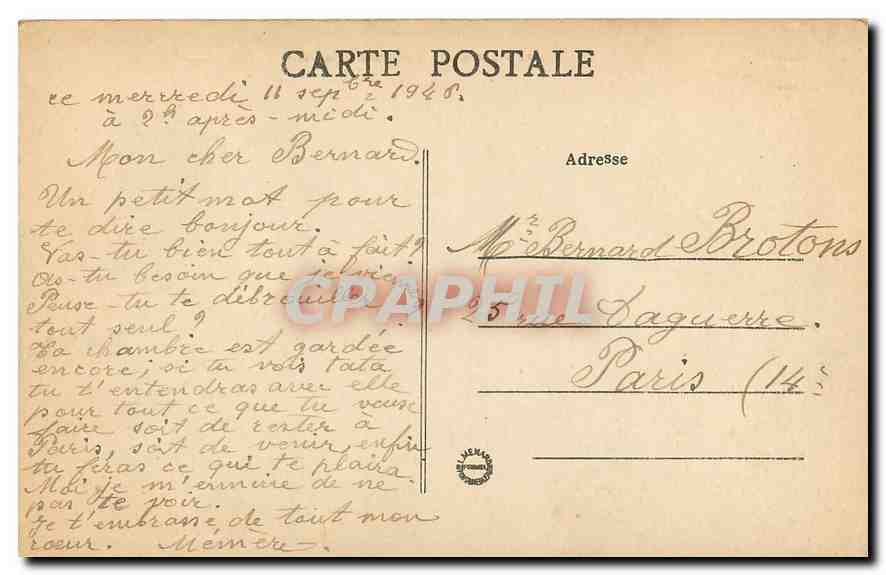 CARTE POSTALE
ce mercredi 11 sepbre 1946.
à 2h après-midi.
Mon cher Bernard.
Un petit mot pour
te dire bonjour.
Vas-tu bien tout à fait?
As-tu besoin que je vienne?
Peuse-tu te débrouiller
tout seul?
Ta chambre est gardée
encore; si tu vois tata
tu t'entendras avec elle
pour tout ce que tu veux
faire soit de rester à
Paris, soit de venir, enfin
tu feras ce qui te plaira.
Moi je m'ennuie de ne
pas te voir.
Je t'embrasse de tout mon
cœur. Mémère.
Adresse
Mr Bernard Brotons
25 rue Daguerre.
Paris (14e
CPAPHIL